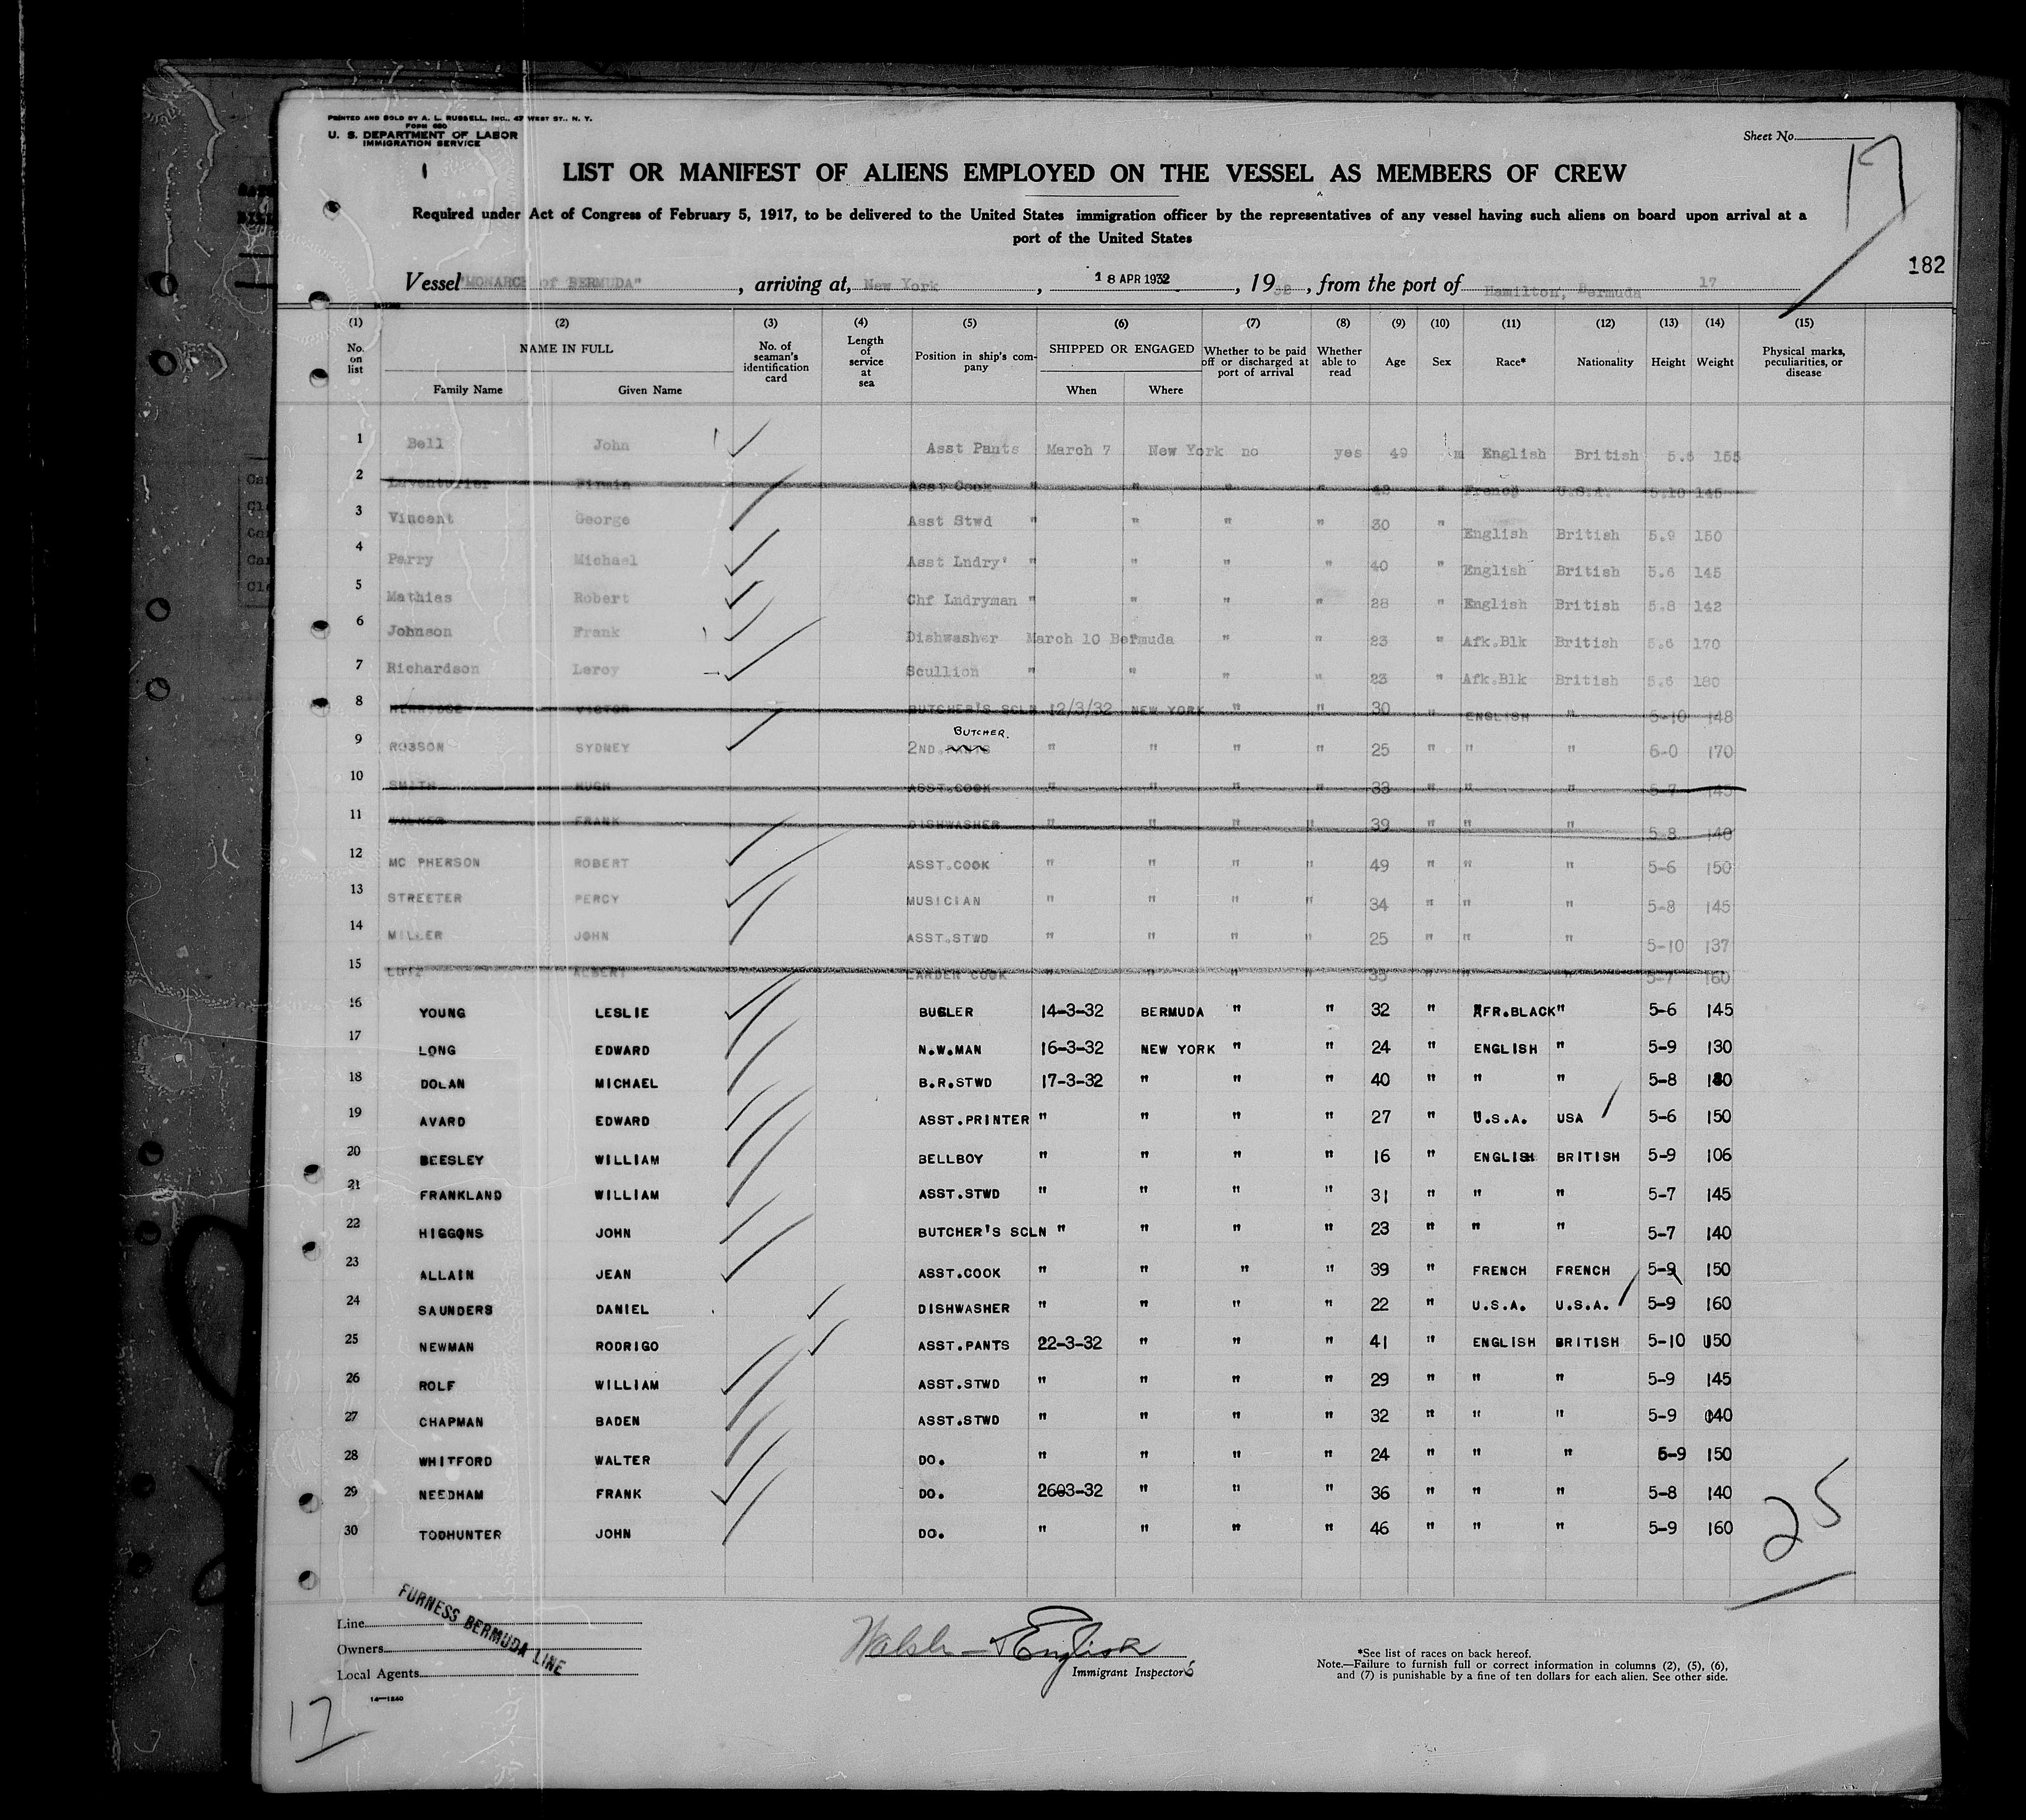 PRINTED AND SOLD BY A. L. RUSSELL, INC., 47 WEST ST., N. Y.
FORM 680
U. S. DEPARTMENT OF LABOR
IMMIGRATION SERVICE
Sheet No.
17
LIST OR MANIFEST OF ALIENS EMPLOYED ON THE VESSEL AS MEMBERS OF CREW
Required under Act of Congress of February 5, 1917, to be delivered to the United States immigration officer by the representatives of any vessel having such aliens on board upon arrival at a
port of the United States
182
Vessel "MONARCH of BERMUDA", arriving at, New York, 18 APR 1932, 1932, from the port of Hamilton, Bermuda 17
(1) (2) (3) (4) (5) (6) (7) (8) (9) (10) (11) (12) (13) (14) (15)
No. on list NAME IN FULL Family Name Given Name No. of seaman's identification card Length of service at sea Position in ship's company SHIPPED OR ENGAGED When Where Whether to be paid off or discharged at port of arrival Whether able to read Age Sex Race* Nationality Height Weight Physical marks, peculiarities, or disease
1 Bell John Asst Pants March 7 New York no yes 49 m English British 5.6 155
2 Asst Cook " " " " " French U.S.A. 5.10 145
3 Vincent George Asst Stwd " " " " 30 " English British 5.9 150
4 Parry Michael Asst Lndry' " " " " 40 " English British 5.6 145
5 Mathias Robert Chf Lndryman " " " " 28 " English British 5.8 142
6 Johnson Frank Dishwasher March 10 Bermuda " " 23 " Afk.Blk British 5.6 170
7 Richardson Leroy Scullion " " " " 23 " Afk.Blk British 5.6 180
8 VICTOR BUTCHER'S SCLN 12/3/32 NEW YORK " " 30 " ENGLISH " 5-10 148
BUTCHER.
9 ROBSON SYDNEY 2ND.PANTS " " " " 25 " " " 6-0 170
10 SMITH HUGH ASST.COOK " " " " 33 " " " 5-7 145
11 WALKER FRANK DISHWASHER " " " " 39 " " " 5-8 140
12 MC PHERSON ROBERT ASST.COOK " " " " 49 " " " 5-6 150
13 STREETER PERCY MUSICIAN " " " " 34 " " " 5-8 145
14 MILLER JOHN ASST.STWD " " " " 25 " " " 5-10 137
15 LUTZ ALBERT LARDER COOK " " " " 35 " " " 5-7 160
16 YOUNG LESLIE BUGLER 14-3-32 BERMUDA " " 32 " AFR.BLACK " 5-6 145
17 LONG EDWARD N.W.MAN 16-3-32 NEW YORK " " 24 " ENGLISH " 5-9 130
18 DOLAN MICHAEL B.R.STWD 17-3-32 " " " 40 " " " 5-8 180
19 AVARD EDWARD ASST.PRINTER " " " " 27 " U.S.A. USA 5-6 150
20 BEESLEY WILLIAM BELLBOY " " " " 16 " ENGLISH BRITISH 5-9 106
21 FRANKLAND WILLIAM ASST.STWD " " " " 31 " " " 5-7 145
22 HIGGONS JOHN BUTCHER'S SCLN " " " " 23 " " " 5-7 140
23 ALLAIN JEAN ASST.COOK " " " " 39 " FRENCH FRENCH 5-9 150
24 SAUNDERS DANIEL DISHWASHER " " " " 22 " U.S.A. U.S.A. 5-9 160
25 NEWMAN RODRIGO ASST.PANTS 22-3-32 " " " 41 " ENGLISH BRITISH 5-10 150
26 ROLF WILLIAM ASST.STWD " " " " 29 " " " 5-9 145
27 CHAPMAN BADEN ASST.STWD " " " " 32 " " " 5-9 140
28 WHITFORD WALTER DO. " " " " 24 " " " 5-9 150
29 NEEDHAM FRANK DO. 2603-32 " " " 36 " " " 5-8 140
30 TODHUNTER JOHN DO. " " " " 46 " " " 5-9 160
25
Line
Owners
Local Agents
FURNESS BERMUDA LINE
14—1240
Walsh - English
Immigrant Inspectors
*See list of races on back hereof.
Note.—Failure to furnish full or correct information in columns (2), (5), (6),
and (7) is punishable by a fine of ten dollars for each alien. See other side.
17